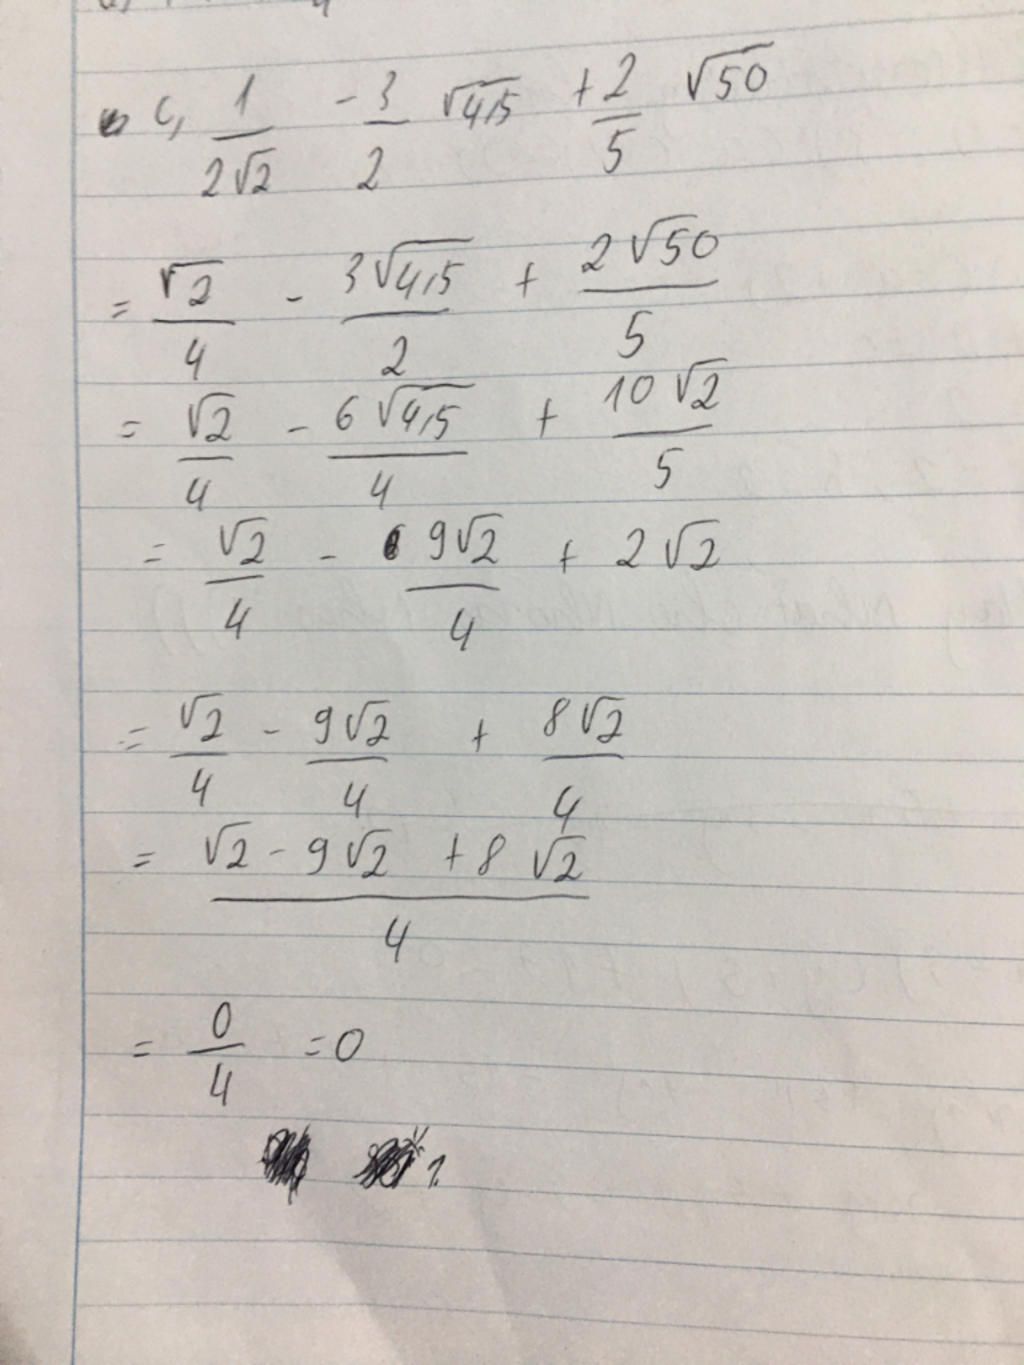 c, 1/(2√2) - 3/2 √4,5 + 2/5 √50
= √2/4 - 3√4,5/2 + 2√50/5
= √2/4 - 6√4,5/4 + 10√2/5
= √2/4 - 9√2/4 + 2√2
= √2/4 - 9√2/4 + 8√2/4
= (√2 - 9√2 + 8√2)/4
= 0/4 = 0